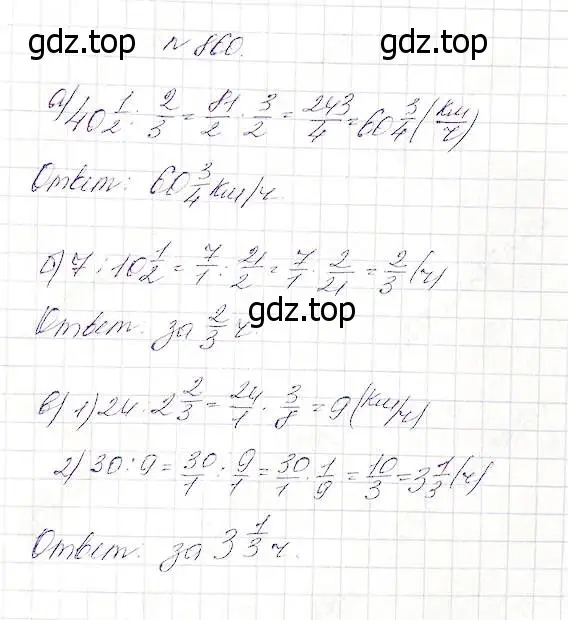 gdz.top № 860. gdz.top
а) 40 1/2 : 2/3 = 81/2 · 3/2 = 243/4 = 60 3/4 (км/ч)
Ответ: 60 3/4 км/ч.
б) 7 : 10 1/2 = 7/1 : 21/2 = 7/1 · 2/21 = 2/3 (ч)
Ответ: за 2/3 ч.
gdz.top
в) 1) 24 : 2 2/3 = 24/1 · 3/8 = 9 (км/ч)
2) 30 : 9 = 30/1 : 9/1 = 30/1 · 1/9 = 10/3 = 3 1/3 (ч)
Ответ: за 3 1/3 ч.